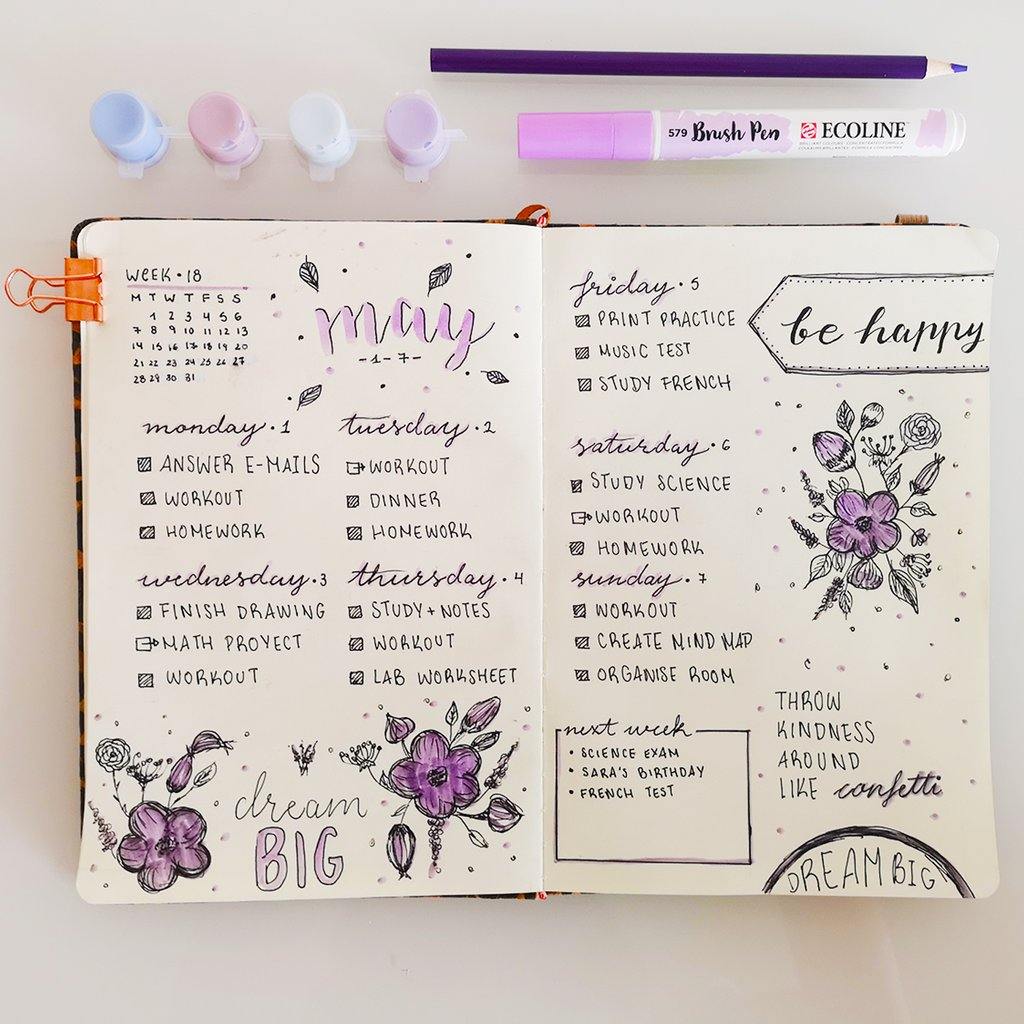 579 Brush Pen ECOLINE
WEEK · 18
M T W T F S S
1 2 3 4 5 6
7 8 9 10 11 12 13
14 15 16 17 18 19 20
21 22 23 24 25 26 27
28 29 30 31
may
-1-7-
monday · 1
ANSWER E-MAILS
WORKOUT
HOMEWORK
tuesday · 2
WORKOUT
DINNER
HONEWORK
wednesday · 3
FINISH DRAWING
MATH PROYECT
WORKOUT
thursday · 4
STUDY + NOTES
WORKOUT
LAB WORKSHEET
dream
BIG
friday · 5
PRINT PRACTICE
MUSIC TEST
STUDY FRENCH
saturday · 6
STUDY SCIENCE
WORKOUT
HOMEWORK
sunday · 7
WORKOUT
CREATE MIND MAP
ORGANISE ROOM
next week
• SCIENCE EXAM
• SARA'S BIRTHDAY
• FRENCH TEST
be happy
THROW
KINDNESS
AROUND
LIKE confetti
DREAM BIG